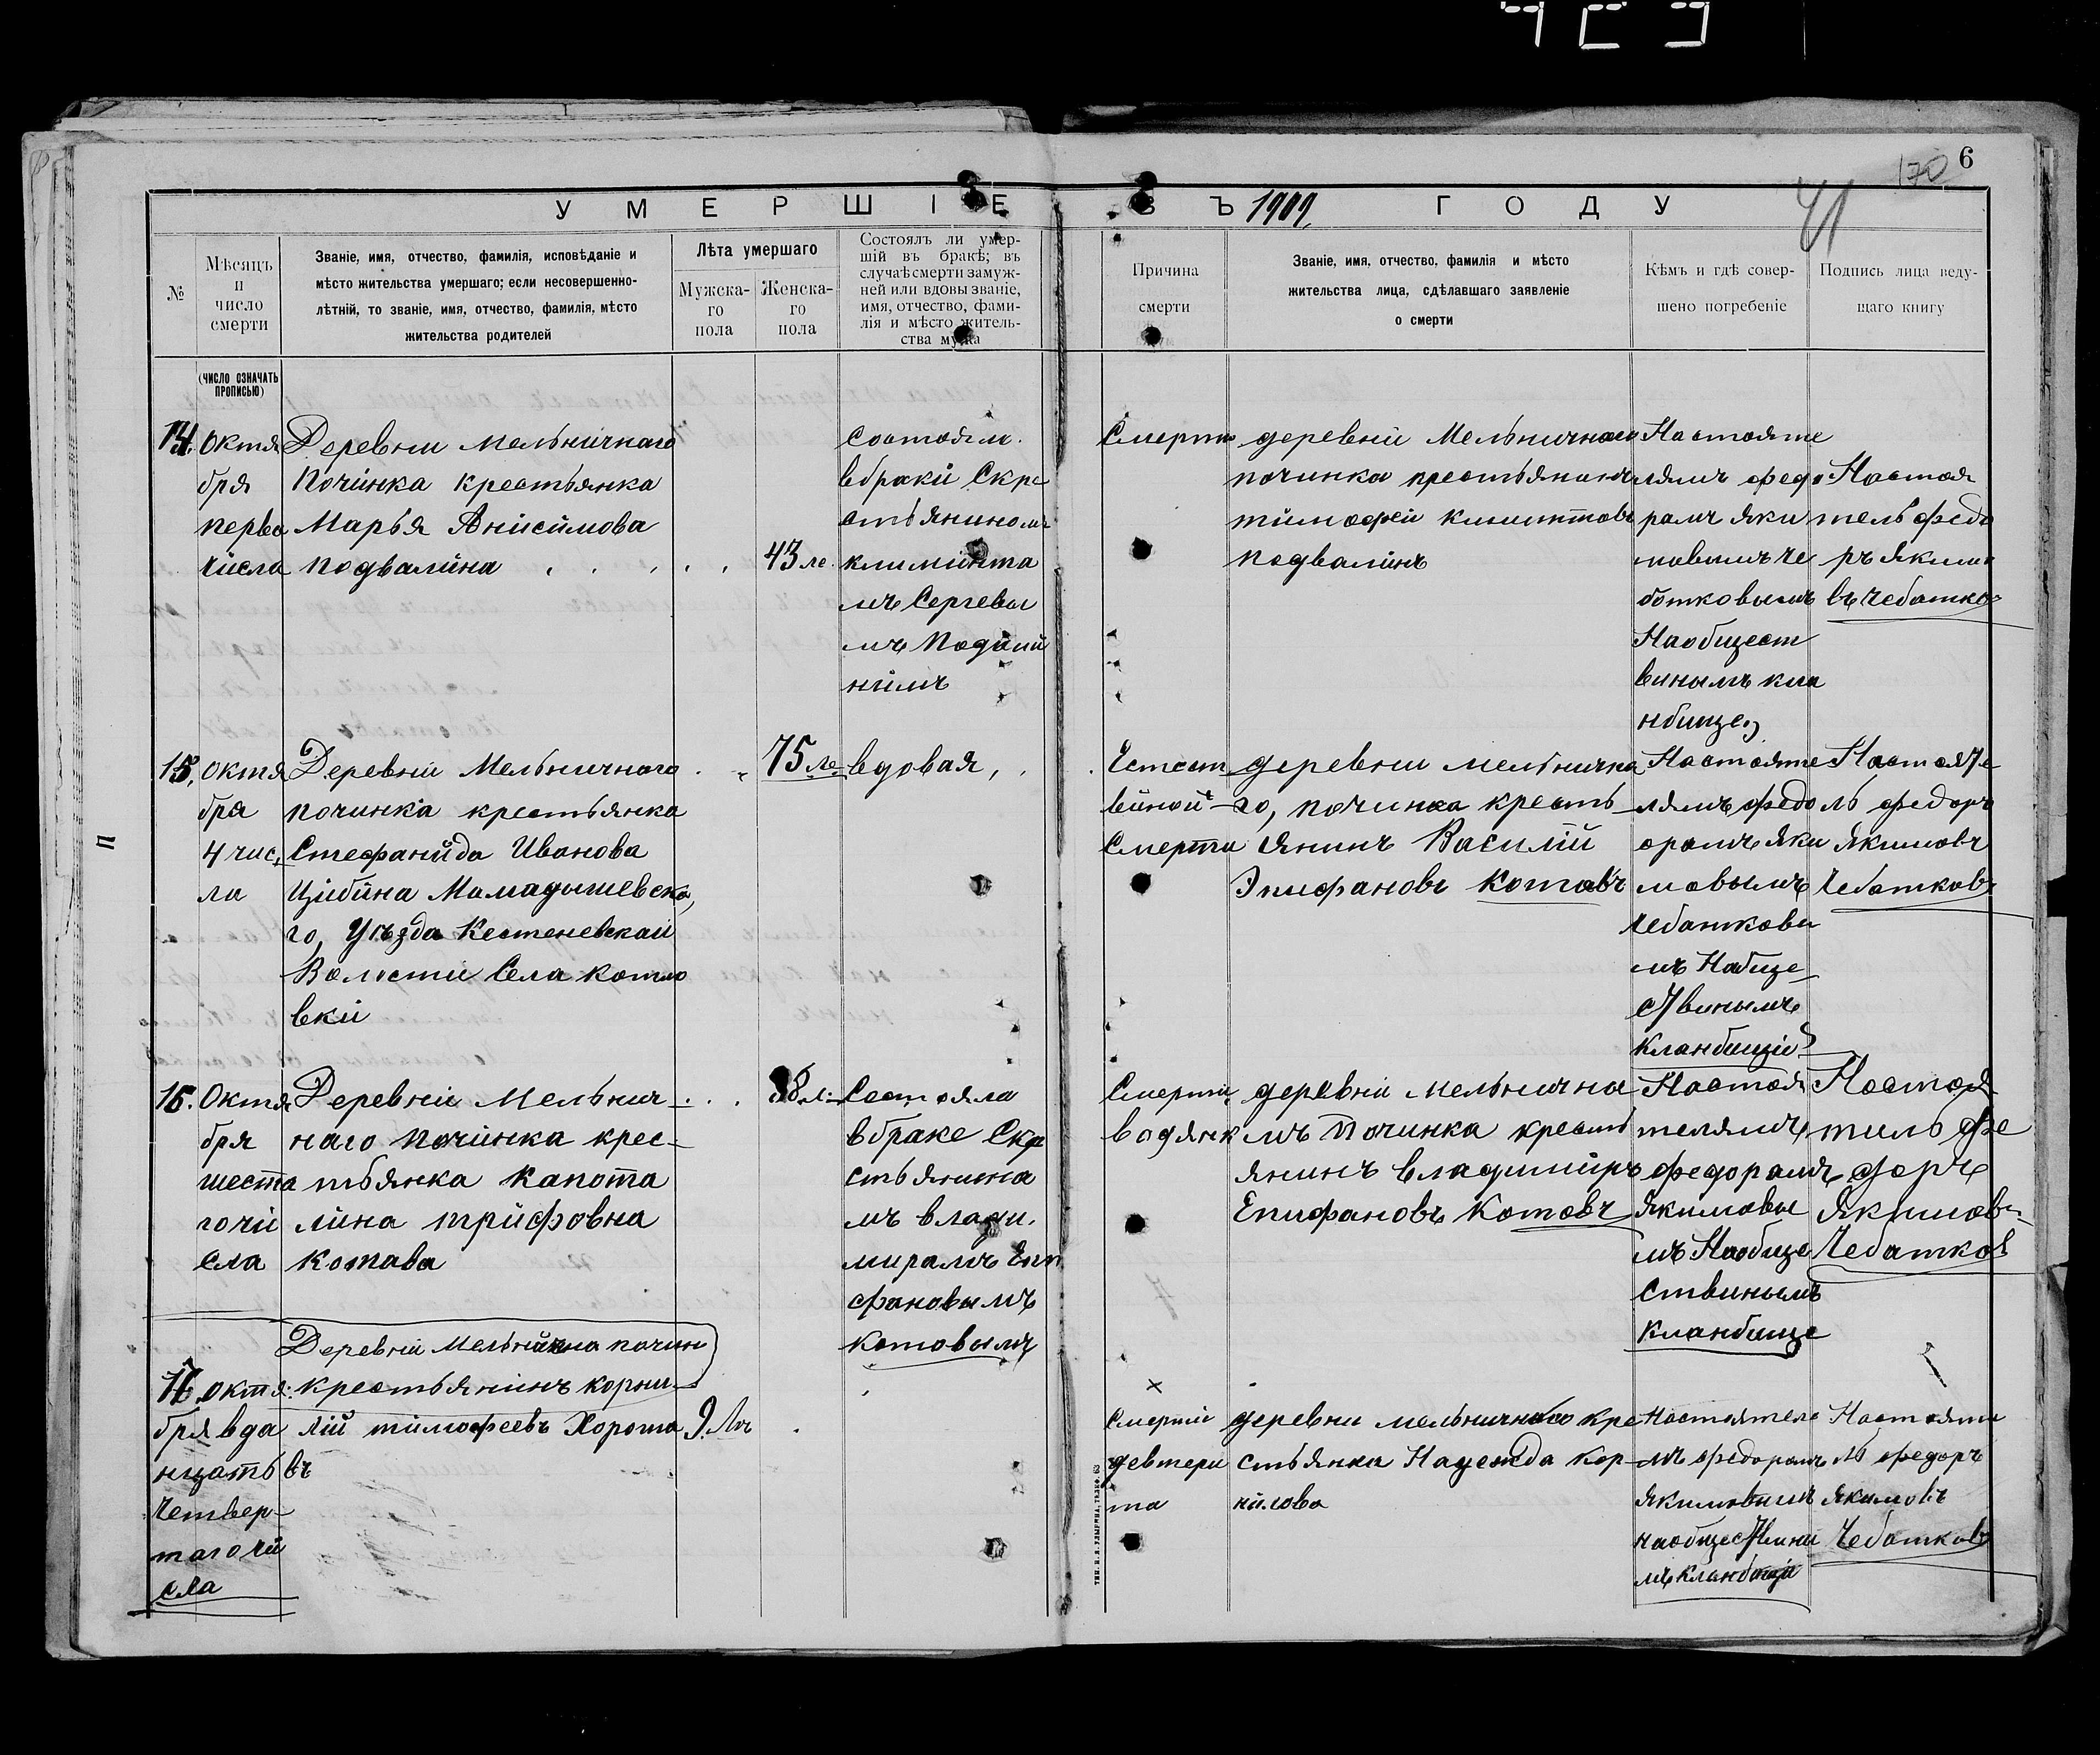 6
170
41
УМЕРШІЕ ВЪ 1909 ГОДУ
№
Мѣсяцъ
и
число
смерти
Званіе, имя, отчество, фамилія, исповѣданіе и
мѣсто жительства умершаго; если несовершенно-
лѣтній, то званіе, имя, отчество, фамилія, мѣсто
жительства родителей
Лѣта умершаго
Мужска-
го
пола
Женска-
го
пола
Состоялъ ли умер-
шій въ бракѣ; въ
случаѣ смерти замуж-
ней или вдовы званіе,
имя, отчество, фами-
лія и мѣсто житель-
ства мужа
Причина
смерти
Званіе, имя, отчество, фамилія и мѣсто
жительства лица, сдѣлавшаго заявленіе
о смерти
Кѣмъ и гдѣ совер-
шено погребеніе
Подпись лица веду-
щаго книгу
(ЧИСЛО ОЗНАЧАТЬ
ПРОПИСЬЮ)
14.
Октя
бря
перва
числа
Деревни Мельничнаго
Починка крестьянка
Марья Анисимова
Подвалина
43 ле.
Состоял.
в браки Скре
стьянином
климинта
мъ Сергевы
мъ
нимъ
Смерти
деревни Мельничнаги
починка крестьянинъ
тимофеи
подвалинъ
Настояте
лямъ федо
рамъ яки
мавымъ че
ботковымъ
Наобщест
винымъ кла
нбище
Настоя
тель федо
ръ якимо
въ Чеботко
15.
Октя
бря
4 чис
ла
Деревни Мельничнаго
починка крестьянка
Стефанида Иванова
Цибина Мамадышевско
го, Уѣзда Кестеневскаи
Волисти Села котло
вки
75 ле
вдовая,
Естест
виной
Смерти
деревни мельнична
го, починка кресть
янинъ Василій
Эпифановъ Котовъ
Настояте
лямъ федо
орамъ яки
мовымъ
Чебаткови
мъ Набще
ствинымъ
кланбищи
Настояте
ль федоръ
Якимовъ
Чебатковъ
16.
Октя
бря
шеста
гочи
сла
Деревни Мельнич
наго Починка крес-
тьянка Капота
лина трифовна
Котава
38 л.
Состояла
в браке Скр
стьянина
мъ влади.
мирамъ Епи
фановымъ
котовымъ
Смерти
водянк
деревни мельнична
мъ Починка кресть
янинъ владимиръ
Епифановъ Котовъ
Настоя
телямъ
федорамъ
Якимовы
мъ Наобще
ствинымъ
Кланбище
Настоя
тиль фе
доръ
Якимовъ
Чебатков
17.
октя:
бря два
нцать
Четвер-
тагочи
сла
Деревни Мельнична почин
крестьянинъ корни-
лій тимофеевъ Хороша
въ
9. Лъ
Смерти
девтери
та
деревни мельничнаго кре
стьянка Надежда кор-
нилова
Настоятеле
мъ федорамъ
якимовым
наобществины
мъ кланбищи
Настояти
ль федоръ
якимовъ
Чебатковъ